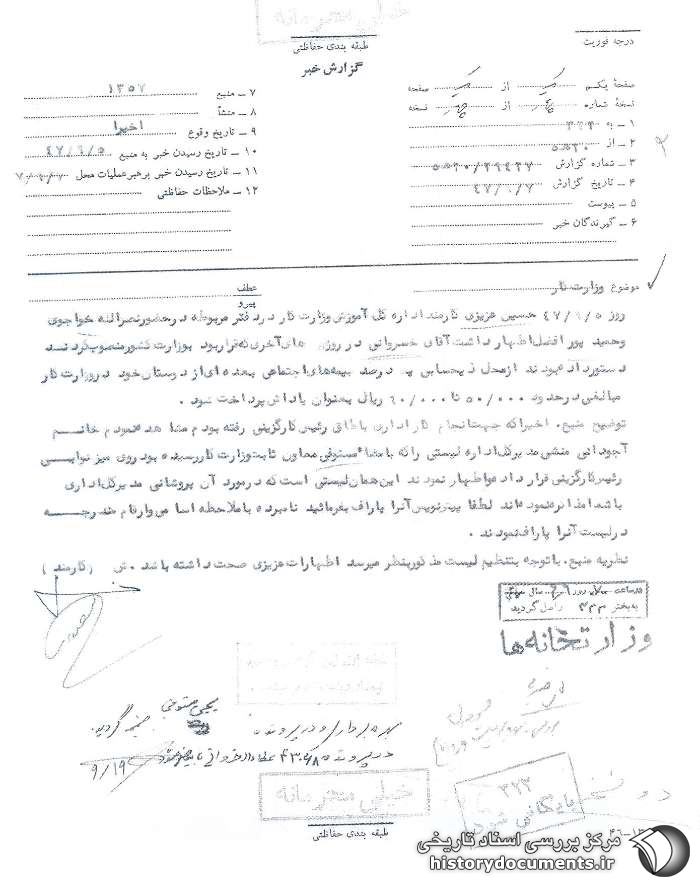 خیلی محرمانه
درجه فوریت
طبقه بندی حفاظتی
گزارش خبر
صفحه یکم از صفحه
نسخه شماره از نسخه
۱ ـ به ۳۳۳
۲ ـ از ۵ ه ۲۰
۳ ـ شماره گزارش ۲۹۴۳۷/۲۰ه۵
۴ ـ تاریخ گزارش ۴۷/۶/۷
۵ ـ پیوست
۶ ـ گیرندگان خبر
۷ ـ منبع ۱۳۵۷
۸ ـ منشأ
۹ ـ تاریخ وقوع اخیرا
۱۰ ـ تاریخ رسیدن خبر به منبع ۴۷/۶/۵
۱۱ ـ تاریخ رسیدن خبر برهبر عملیات محل
۱۲ ـ ملاحظات حفاظتی
موضوع وزارت کار
عطف
پیرو
روز ۴۷/۶/۵ حسین عزیزی کارمند اداره کل آموزش وزارت کار در دفتر مربوطه در حضور نصرالله خواجوی
وحمید پور افضل اظهار داشت آقای خسروانی در روزهای آخری که قرار بود بوزارت کشور منصوب گردند
دستور داده بودند از محل ذیحسابی بیمه‌های اجتماعی بعده‌ای از دوستان خود در وزارت کار
مبالغی در حدود ۵۰/۰۰۰ تا ۶۰/۰۰۰ ریال بعنوان پاداش پرداخت شود .
توضیح منبع. اخیرا که جهت انجام کار اداری باطاق رئیس کارگزینی رفته بودم مشاهده نمودم خانم
آجودانی منشی مدیرکل اداری لیستی را که بامضاء مستوفی معاون ثابت وزارت کار رسیده بود روی میز نوابی
رئیس کارگزینی قرار داد و اظهار نمودند این همان لیستی است که در مورد آن بروشانی مدیرکل اداری
باشما مذاکره نموده‌اند لطفا پیش‌نویس آنرا پاراف بفرمائید نامبرده با ملاحظه اسامی و ارقام مندرجه
در لیست آنرا پاراف نمودند .
نظریه منبع. با توجه بتنظیم لیست مذکور بنظر میرسد اظهارات عزیزی صحت داشته باشد . ش (کارمند)
وزارتخانه‌ها
بهره‌برداری و در پرونده یحیی مستوفی ضمیمه گردید.
در پرونده ۴۳۰۶۸۵ عطاءالله خسروانی بایگانی شود
۶/۱۹
خیلی محرمانه
طبقه بندی حفاظتی
۳۲۲
بایگانی شود
دو نسخه
مرکز بررسی اسناد تاریخی
historydocuments.ir